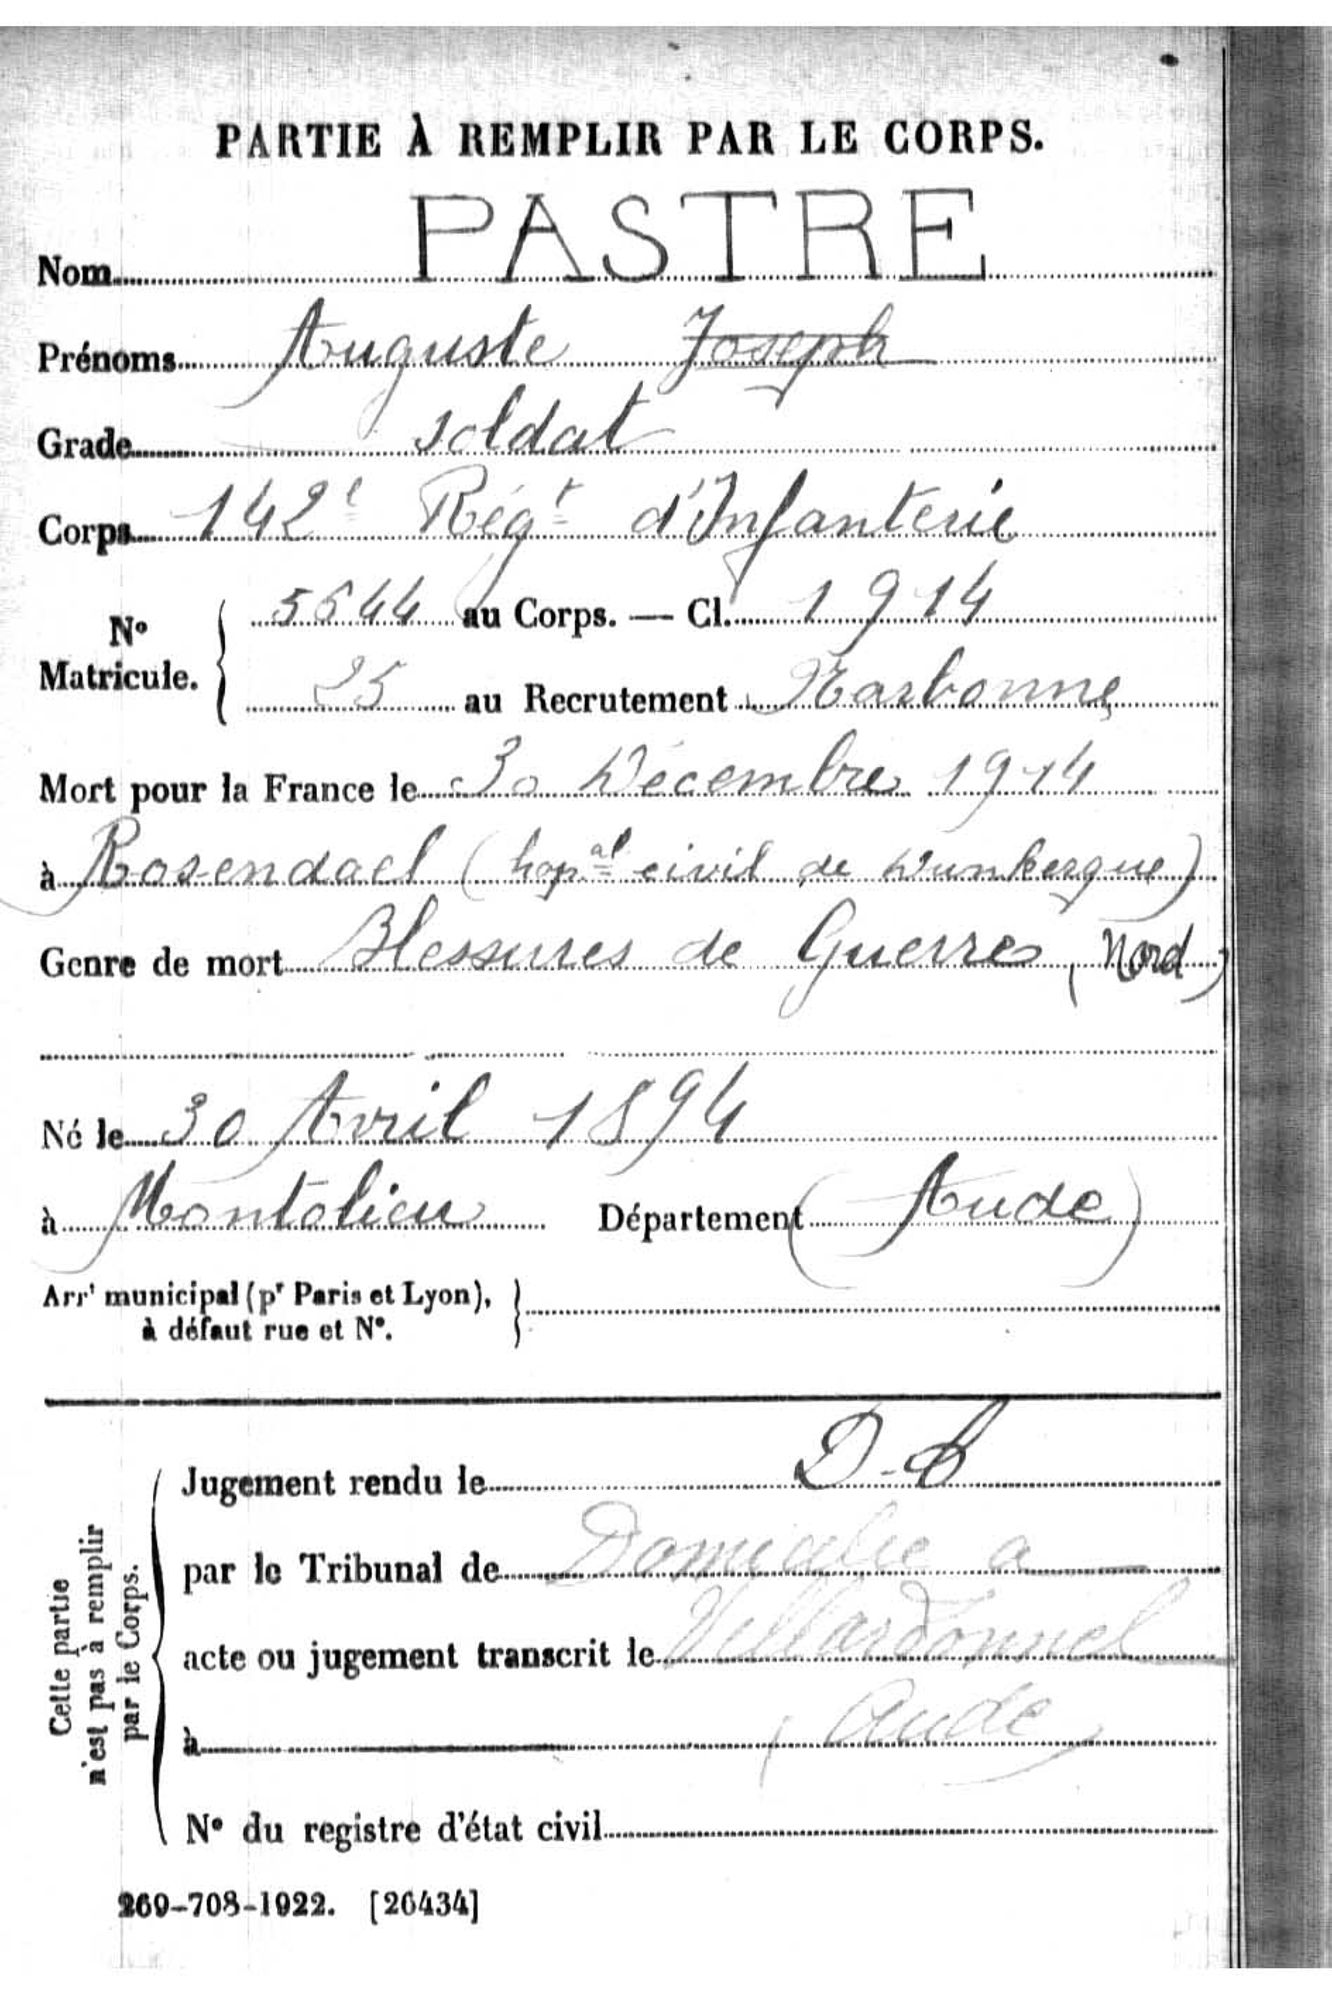 PARTIE À REMPLIR PAR LE CORPS.
Nom PASTRE
Prénoms Auguste Joseph
Grade soldat
Corps 142e Régt d'Infanterie
No Matricule. 5644 au Corps. — Cl. 1914
25 au Recrutement Narbonne
Mort pour la France le 30 Décembre 1914
à Rosendael (hopal civil de Dunkerque)
Genre de mort Blessures de Guerre (Nord)
Né le 30 Avril 1894
à Montolieu Département (Aude)
Arrt municipal (pr Paris et Lyon),
à défaut rue et No.
Cette partie
n'est pas à remplir
par le Corps.
Jugement rendu le
par le Tribunal de Domicilié a
acte ou jugement transcrit le Villardonnel
à (Aude)
No du registre d'état civil
269-708-1922. [26434]